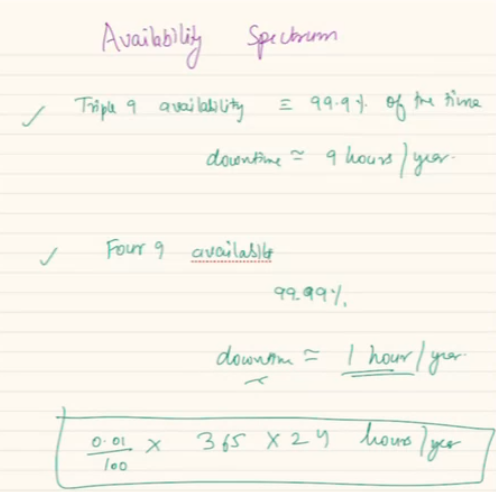 Availability Spectrum
✓ Triple 9 availability ≡ 99.9% of the time
downtime ≃ 9 hours/year.
✓ Four 9 available
99.99%.
downtime ≃ 1 hour/year.
0.01/100 × 365 × 24 hours/year